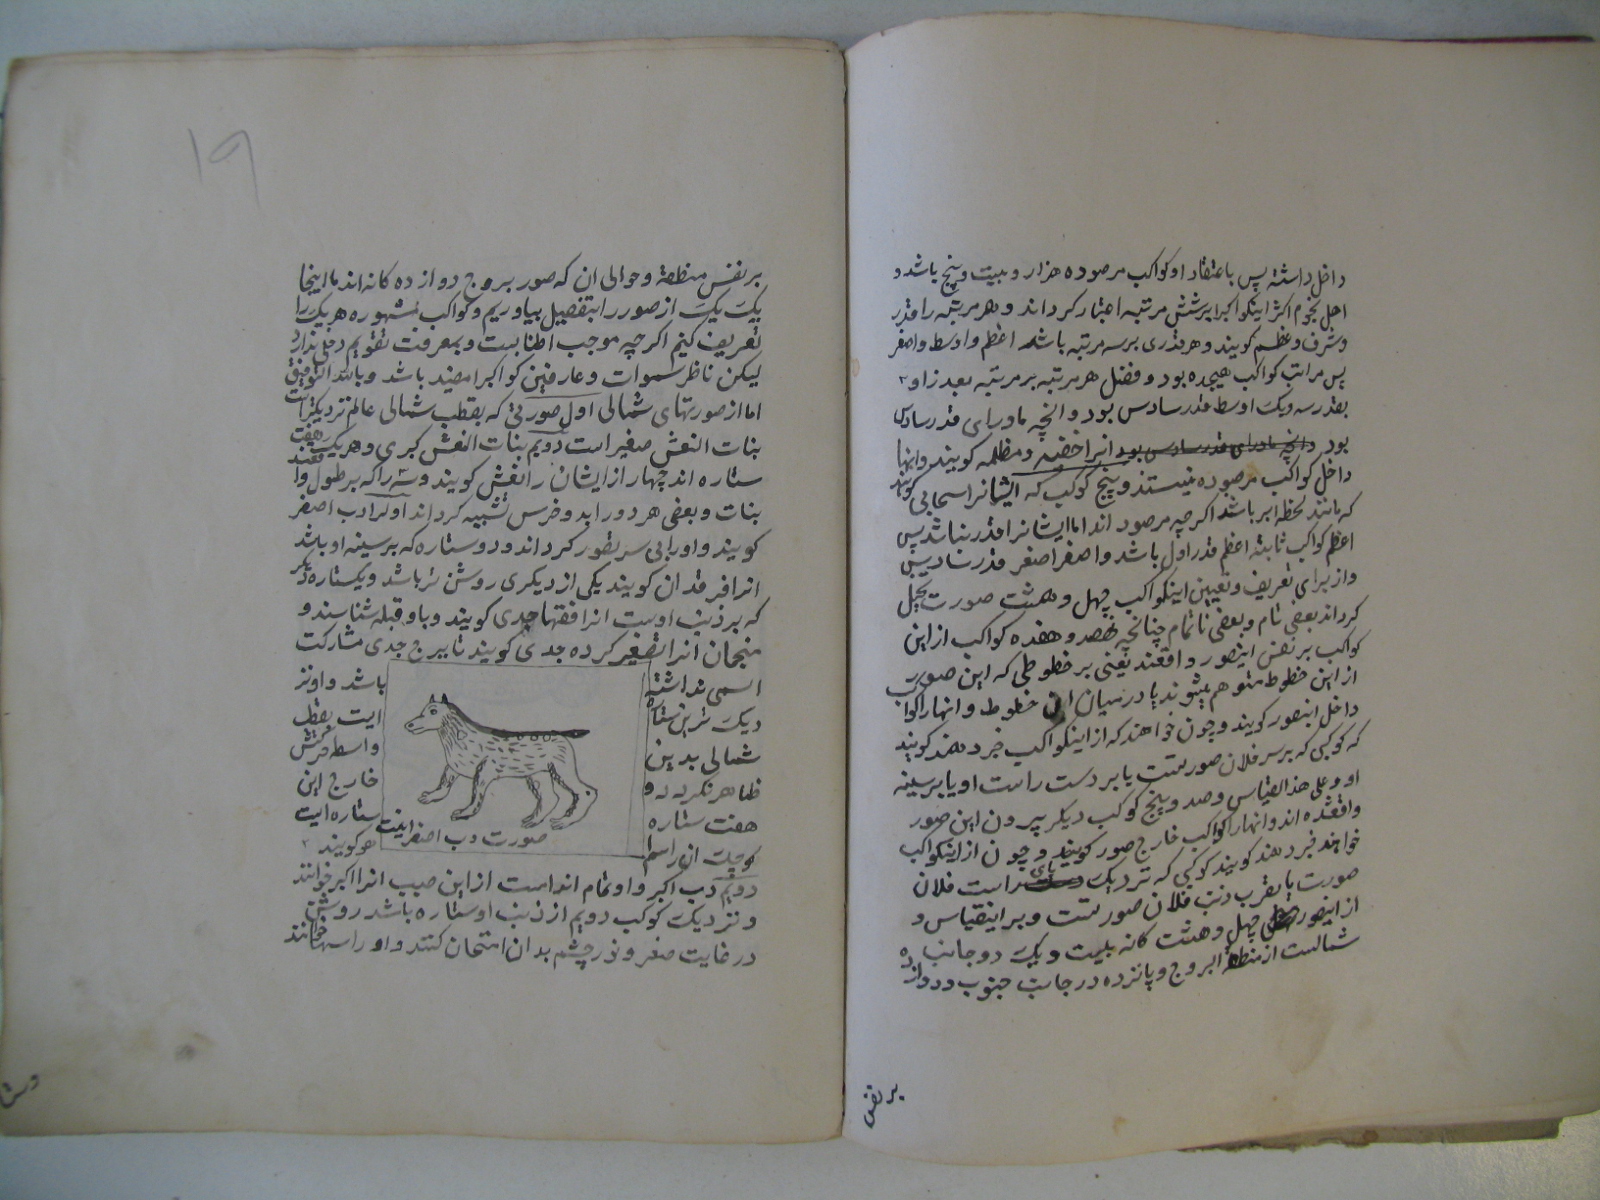 داخل داشته پس باعتقاد او کواکب مرصوده هزار و بیست و پنج باشد و
اهل نجوم اکثر اینکواکبرا بر شش مرتبه اعتبار کرده‌اند و هر مرتبه را قدر
و شرف و عظم کویند و هر قدری بر سه مرتبه باشد اعظم و اوسط و اصغر
پس مراتب کواکب هیجده بود و فضل هر مرتبه بر مرتبه بعد از او
بقدر سدس یک اوسط قدر سادس بود و انچه ماورای قدر سادس
بود انرا خفیه و مظلمه کویند و انها
داخل کواکب مرصوده نیستند و پنج کوکب که ایشانرا سحابی کویند
که مانند لحظه ابر باشد اکرچه مرصود اند اما ایشانرا قدر نباشد پس
اعظم کواکب ثابته اعظم قدر اول باشد و اصغر اصغر قدر سادس
و از برای تعریف و تعیین اینکواکب چهل و هشت صورت تخیل
کرده‌اند بعضی تام و بعضی ناتمام چنانچه نهصد و هفده کواکب از این
کواکب بر نفس اینصور واقعند یعنی بر خطوطی که این صورت
از این خطوط متوهم میشوند یا در میان ان خطوط و انها را کواکب
داخل اینصور کویند و چون خواهند که از اینکواکب خبر دهند کویند
که کوکبی که بر سر فلان صورتست یا بر دست راست او یا بر سینه
او و علی هذا القیاس و صد و پنج کوکب دیکر بیرون این صور
واقعشده اند و انها را کواکب خارج صور کویند و چون از اینکواکب
خواهند خبر دهند کویند کوکبی که نزدیک پای راست فلان
صورت یا بقرب ذنب فلان صورتست و بر اینقیاس و
از اینصور چهل و هشت کانه بیست و یک در جانب
شمالست از منطقة البروج و پانزده در جانب جنوب و دوازده
بر نفس
۱۹
بر نفس منطقة و حوالی ان که صور بروج دوازده کانه‌اند ما اینجا
یک یک از صور را بتفصیل بیاوریم و کواکب مشهوره هر یک را
تعریف کنیم اکرچه موجب اطنابست و بمعرفت تقویم دخلی ندارد
لیکن ناظر سموات و عارفین کواکبرا مفید باشد و بالله التوفیق
اما از صورتهای شمالی اول صورتی که بقطب شمالی عالم نزدیکتر است
بنات النعش صغیر است دویم بنات النعش کبری و هر یک هفت
ستاره اند چهار از ایشان را نعش کویند و سه را که بر طول واقعند
بنات و بعضی هر دو را بدو خرس تشبیه کرده‌اند اولرا دب اصغر
کویند و او را بی سر تصور کرده‌اند و دو ستاره که بر سینه او باشد
انرا فرقدان کویند یکی از دیکری روشن تر باشد و یکستاره دیکر
که بر ذنب اوست انرا فقها جدی کویند و باو قبله شناسند و
منجمان انرا تصغیر کرده جدی کویند تا ببرج جدی مشارکت
اسمی نداشته باشد و او نز
دیک ترین ستاره ایست بقطب
شمالی بدین واسطه حرکتش
ظاهر نکردد و خارج این
هفت ستاره ستاره ایست
کوچک ان را سها کویند
صورت دب اصغر اینست
دویم دب اکبر و او تمام اندامست از این سبب انرا اکبر خوانند
و نزدیک کوکب دویم از ذنب او ستاره باشد روشن
در غایت صغر و نور چشم بدان امتحان کنند و او را سها خوانند